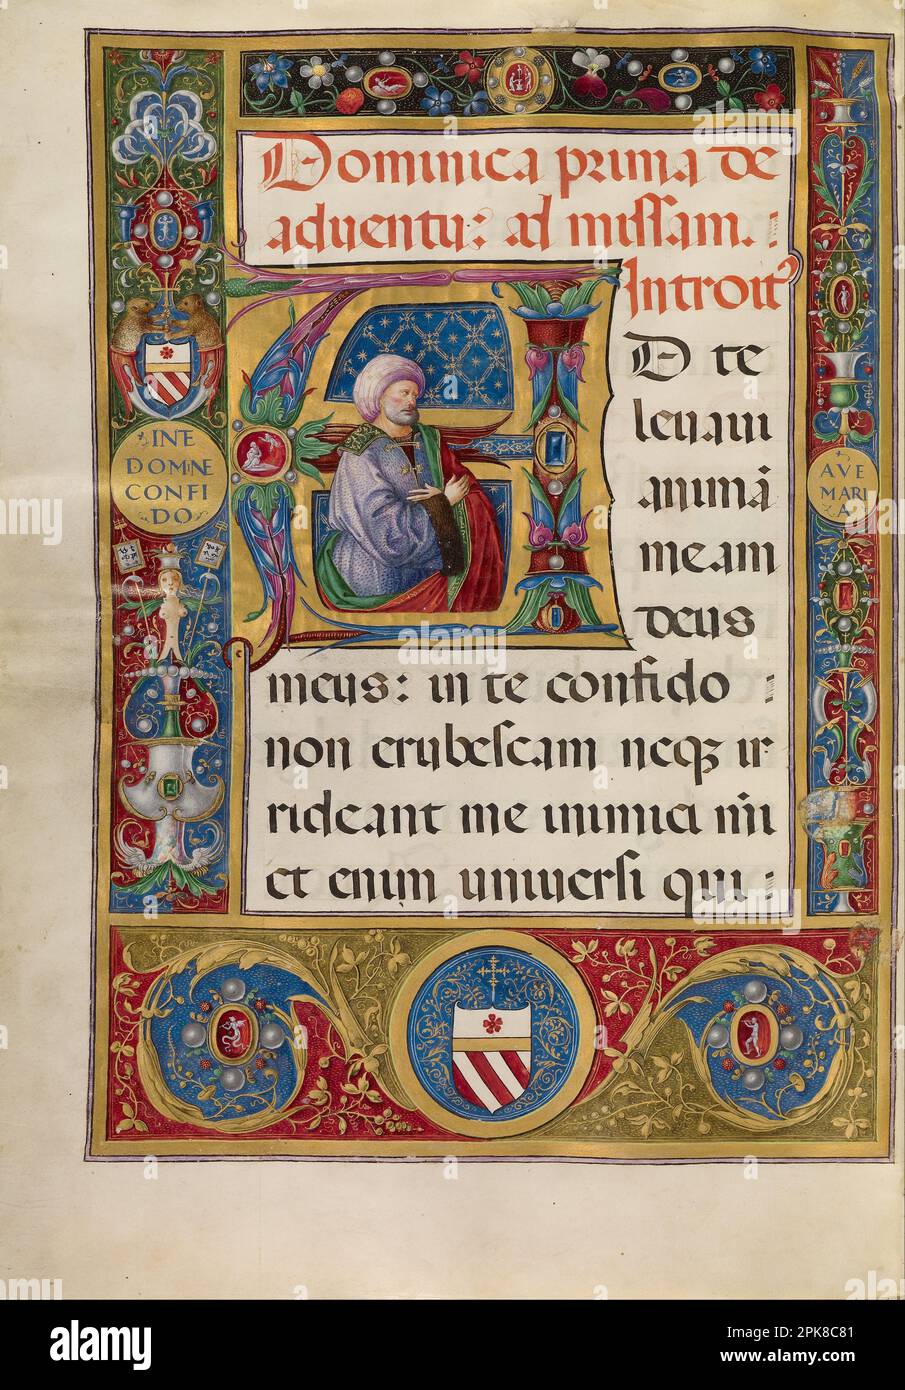 Dominica prima de
aduentu: ad missam.
Introit
AD te
leuaui
animā
meam
deus
meus: in te confido
non erubescam neq ir
rideant me inimici mi
et enim uniuersi qui
IN TE
DOMINE
CONFI
DO
AVE
MARI
A
alamy
Image ID: 2PK8C81
www.alamy.com